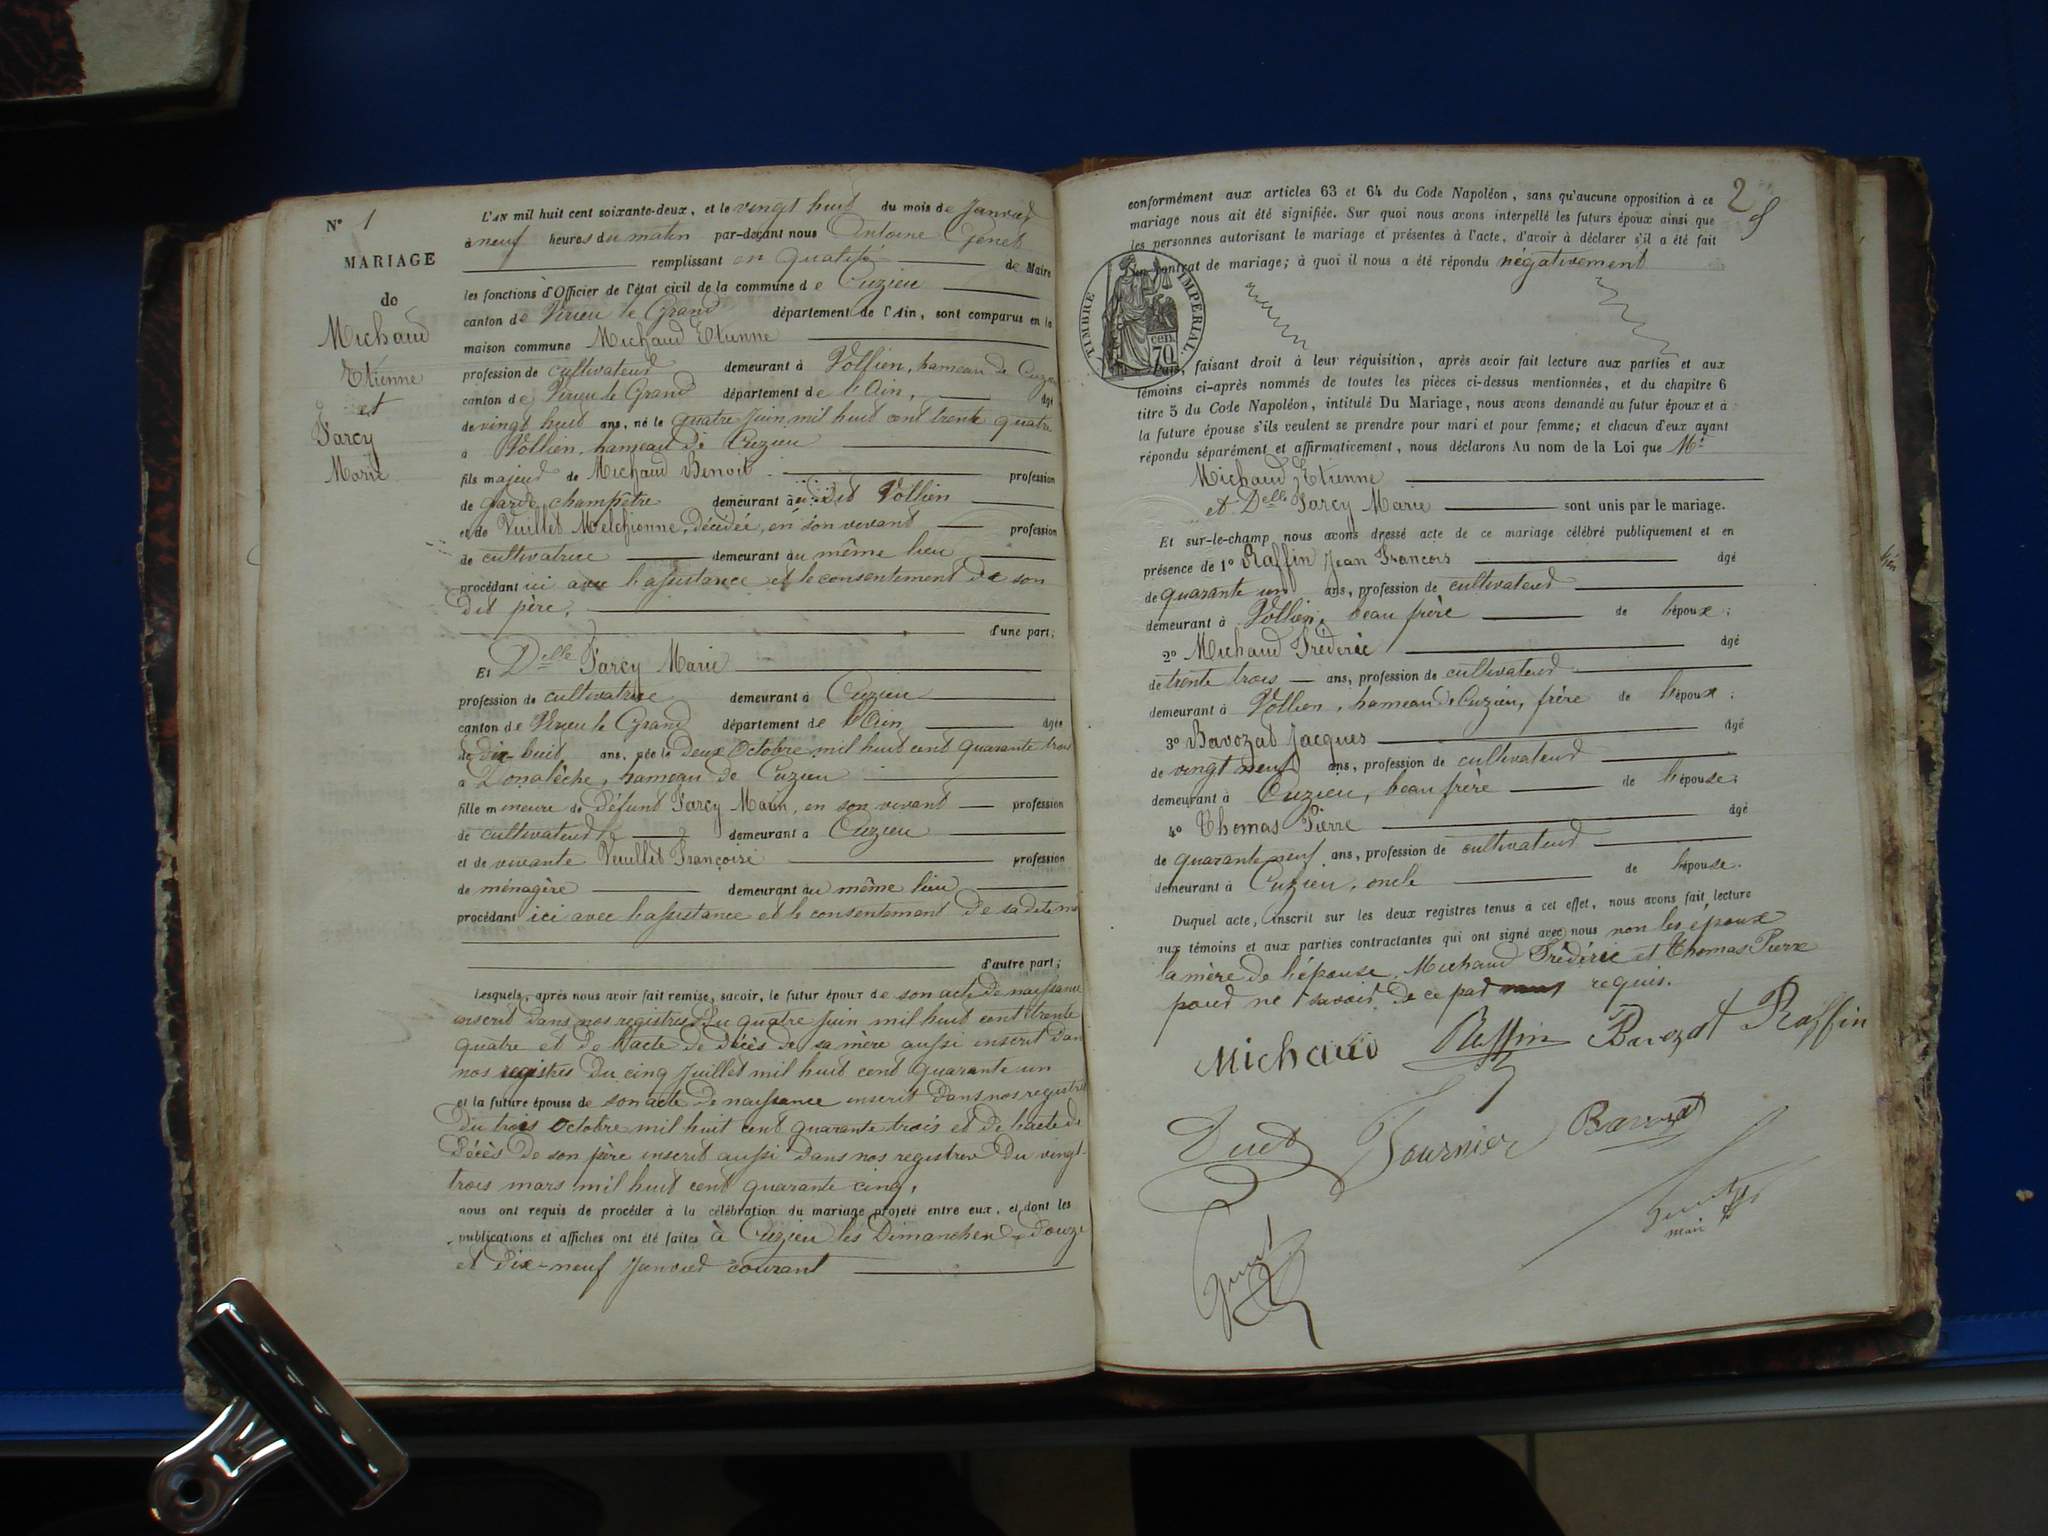 N° 1
MARIAGE
de
Michaud
Etienne
et
Farcy
Marie
L'AN mil huit cent soixante-deux, et le vingt huit du mois de Janvier
à neuf heures du matin par-devant nous Antoine Genet
remplissant en qualité de Maire
les fonctions d'Officier de l'état civil de la commune de Cuzieu
canton de Virieu le Grand département de l'Ain, sont comparus en la
maison commune Michaud Etienne
profession de cultivateur demeurant à Vollien, hameau de Cuzieu
canton de Virieu le Grand département de l'Ain, âgé
de vingt huit ans, né le quatre Juin mil huit cent trente quatre
à Vollien, hameau de Cuzieu
fils majeur de Michaud Benoit profession
de garde champêtre demeurant audit Vollien
et de Vuillet Melchionne, décédée, en son vivant profession
de cultivatrice demeurant au même lieu
procédant ici avec l'assistance et le consentement de son
dit père.
d'une part;
Et Delle Farcy Marie
profession de cultivatrice demeurant à Cuzieu
canton de Virieu le Grand département de l'Ain âgée
de dix-huit ans, née le deux Octobre mil huit cent quarante trois
à Donalèche, hameau de Cuzieu
fille mineure de défunt Farcy Marin, en son vivant profession
de cultivateur demeurant à Cuzieu
et de vivante Vuillet Françoise profession
de ménagère demeurant au même lieu
procédant ici avec l'assistance et le consentement de sa dite mère
d'autre part;
Lesquels, après nous avoir fait remise, savoir, le futur époux de son acte de naissance
inscrit dans nos registres du quatre Juin mil huit cent trente
quatre et de l'acte de décès de sa mère aussi inscrit dans
nos registres du cinq Juillet mil huit cent quarante un
et la future épouse de son acte de naissance inscrit dans nos registres
du trois Octobre mil huit cent quarante trois et de l'acte de
décès de son père inscrit aussi dans nos registres du vingt-
trois mars mil huit cent quarante cinq,
nous ont requis de procéder à la célébration du mariage projeté entre eux, et dont les
publications et affiches ont été faites à Cuzieu les Dimanches douze
et dix-neuf Janvier courant
2
conformément aux articles 63 et 64 du Code Napoléon, sans qu'aucune opposition à ce
mariage nous ait été signifiée. Sur quoi nous avons interpellé les futurs époux ainsi que
les personnes autorisant le mariage et présentes à l'acte, d'avoir à déclarer s'il a été fait
un contrat de mariage; à quoi il nous a été répondu négativement
TIMBRE IMPÉRIAL.
70 cen.
faisant droit à leur réquisition, après avoir fait lecture aux parties et aux
témoins ci-après nommés de toutes les pièces ci-dessus mentionnées, et du chapitre 6
titre 5 du Code Napoléon, intitulé Du Mariage, nous avons demandé au futur époux et à
la future épouse s'ils veulent se prendre pour mari et pour femme; et chacun d'eux ayant
répondu séparément et affirmativement, nous déclarons Au nom de la Loi que Mr
Michaud Etienne
et Delle Farcy Marie sont unis par le mariage.
Et sur-le-champ nous avons dressé acte de ce mariage célébré publiquement et en
présence de 1° Raffin Jean François âgé
de quarante un ans, profession de cultivateur
demeurant à Vollien, beau frère de l'époux;
2° Michaud Frédéric âgé
de trente trois ans, profession de cultivateur
demeurant à Vollien, hameau de Cuzieu, frère de l'époux;
3° Bavozat Jacques âgé
de vingt neuf ans, profession de cultivateur
demeurant à Cuzieu, beau frère de l'épouse;
4° Thomas Pierre âgé
de quarante neuf ans, profession de cultivateur
demeurant à Cuzieu, oncle de l'épouse.
Duquel acte, inscrit sur les deux registres tenus à cet effet, nous avons fait lecture
aux témoins et aux parties contractantes qui ont signé avec nous non les époux
la mère de l'épouse, Michaud Frédéric et Thomas Pierre
pour ne savoir de ce par requis.
Michaud Raffin Bavozat Raffin
Ducd Fournier Bavozat
Genet
maire